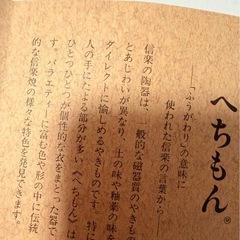 へちもん®
「ふうがわり」の意味に
使われた信楽の言葉から──
信楽の陶器は、一般的な磁器質のやきもの
とあじわいが異なり、土の味や釉薬の味
ダイレクトに愉しめるやきものです。特に
人の手にたとる部分が多い〈へちもん〉は
ひとつひとつが個性的な衣をまとった器で
す。バラエティーに富む色や形の中に伝統
的な信楽焼の様々な特色を発見できます。